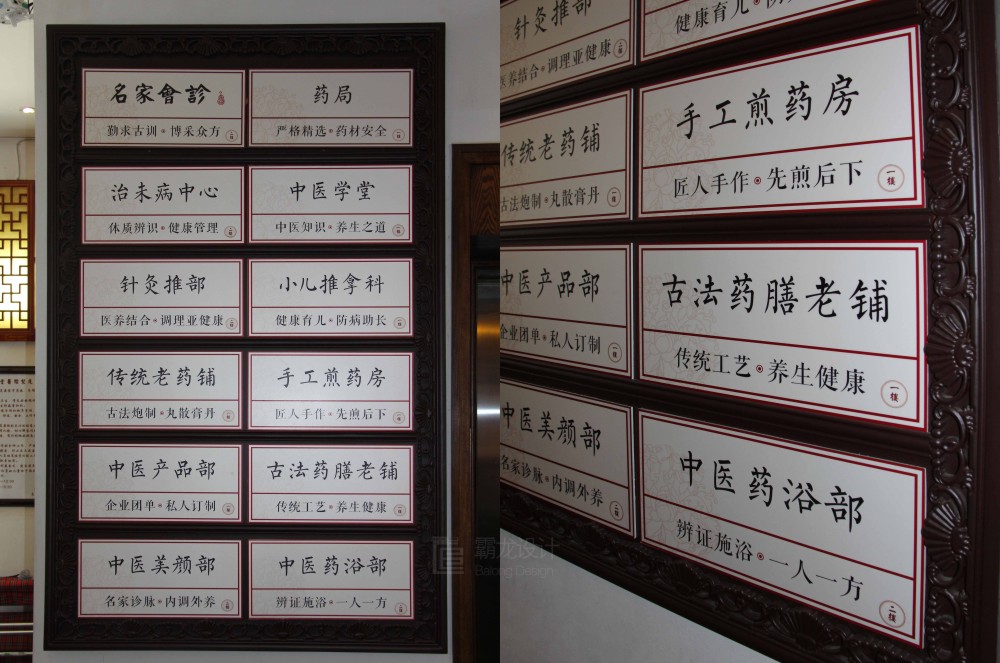 名家會診
勤求古训·博采众方
药局
严格精选·药材安全
治未病中心
体质辨识·健康管理
中医学堂
中医知识·养生之道
针灸推部
医养结合·调理亚健康
小儿推拿科
健康育儿·防病助长
传统老药铺
古法炮制·丸散膏丹
手工煎药房
匠人手作·先煎后下
中医产品部
企业团单·私人订制
古法药膳老铺
传统工艺·养生健康
中医美颜部
名家诊脉·内调外养
中医药浴部
辨证施浴·一人一方
针灸推部
医养结合·调理亚健康
二楼
健康育儿·防
传统老药铺
古法炮制·丸散膏丹
一楼
手工煎药房
匠人手作·先煎后下
一楼
中医产品部
企业团单·私人订制
一楼
古法药膳老铺
传统工艺·养生健康
一楼
中医美颜部
名家诊脉·内调外养
二楼
中医药浴部
辨证施浴·一人一方
二楼
霸龙设计
Balong Design